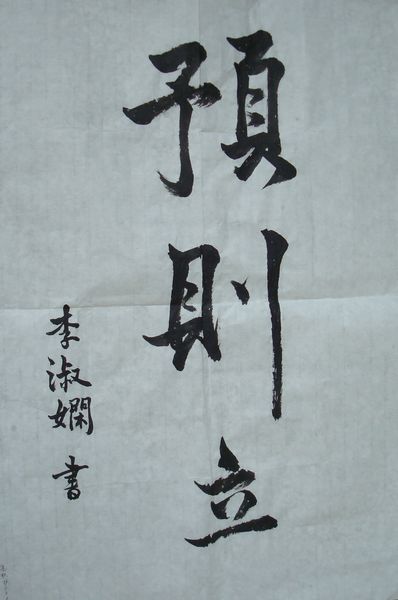 預則立
李淑嫻書